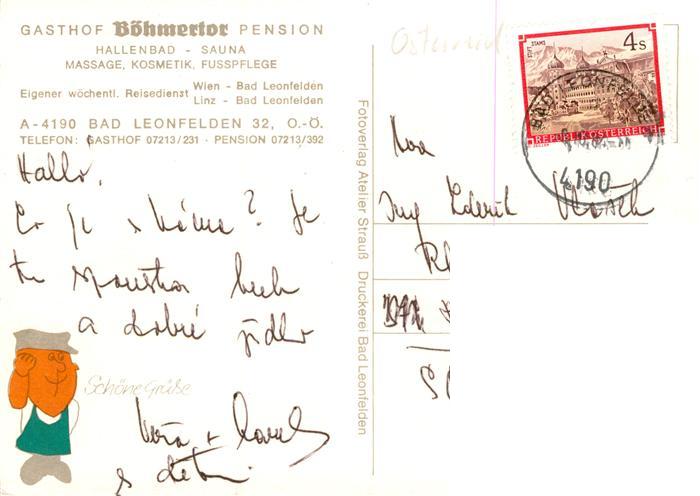 GASTHOF Böhmertor PENSION
HALLENBAD - SAUNA
MASSAGE, KOSMETIK, FUSSPFLEGE
Eigener wöchentl. Reisedienst Wien - Bad Leonfelden
Linz - Bad Leonfelden
A-4190 BAD LEONFELDEN 32, O.-Ö.
TELEFON: GASTHOF 07213/231 · PENSION 07213/392
Hallo,
Co je s Váma? Je
tu spousta
a dobré jídlo
Schöne Grüße
Věra +
s dětmi.
Fotoverlag Atelier Strauß Druckerei Bad Leonfelden
Österreich
STIFT STAMS
4 S
REPUBLIK ÖSTERREICH
BAD LEONFELDEN
4190
Ing